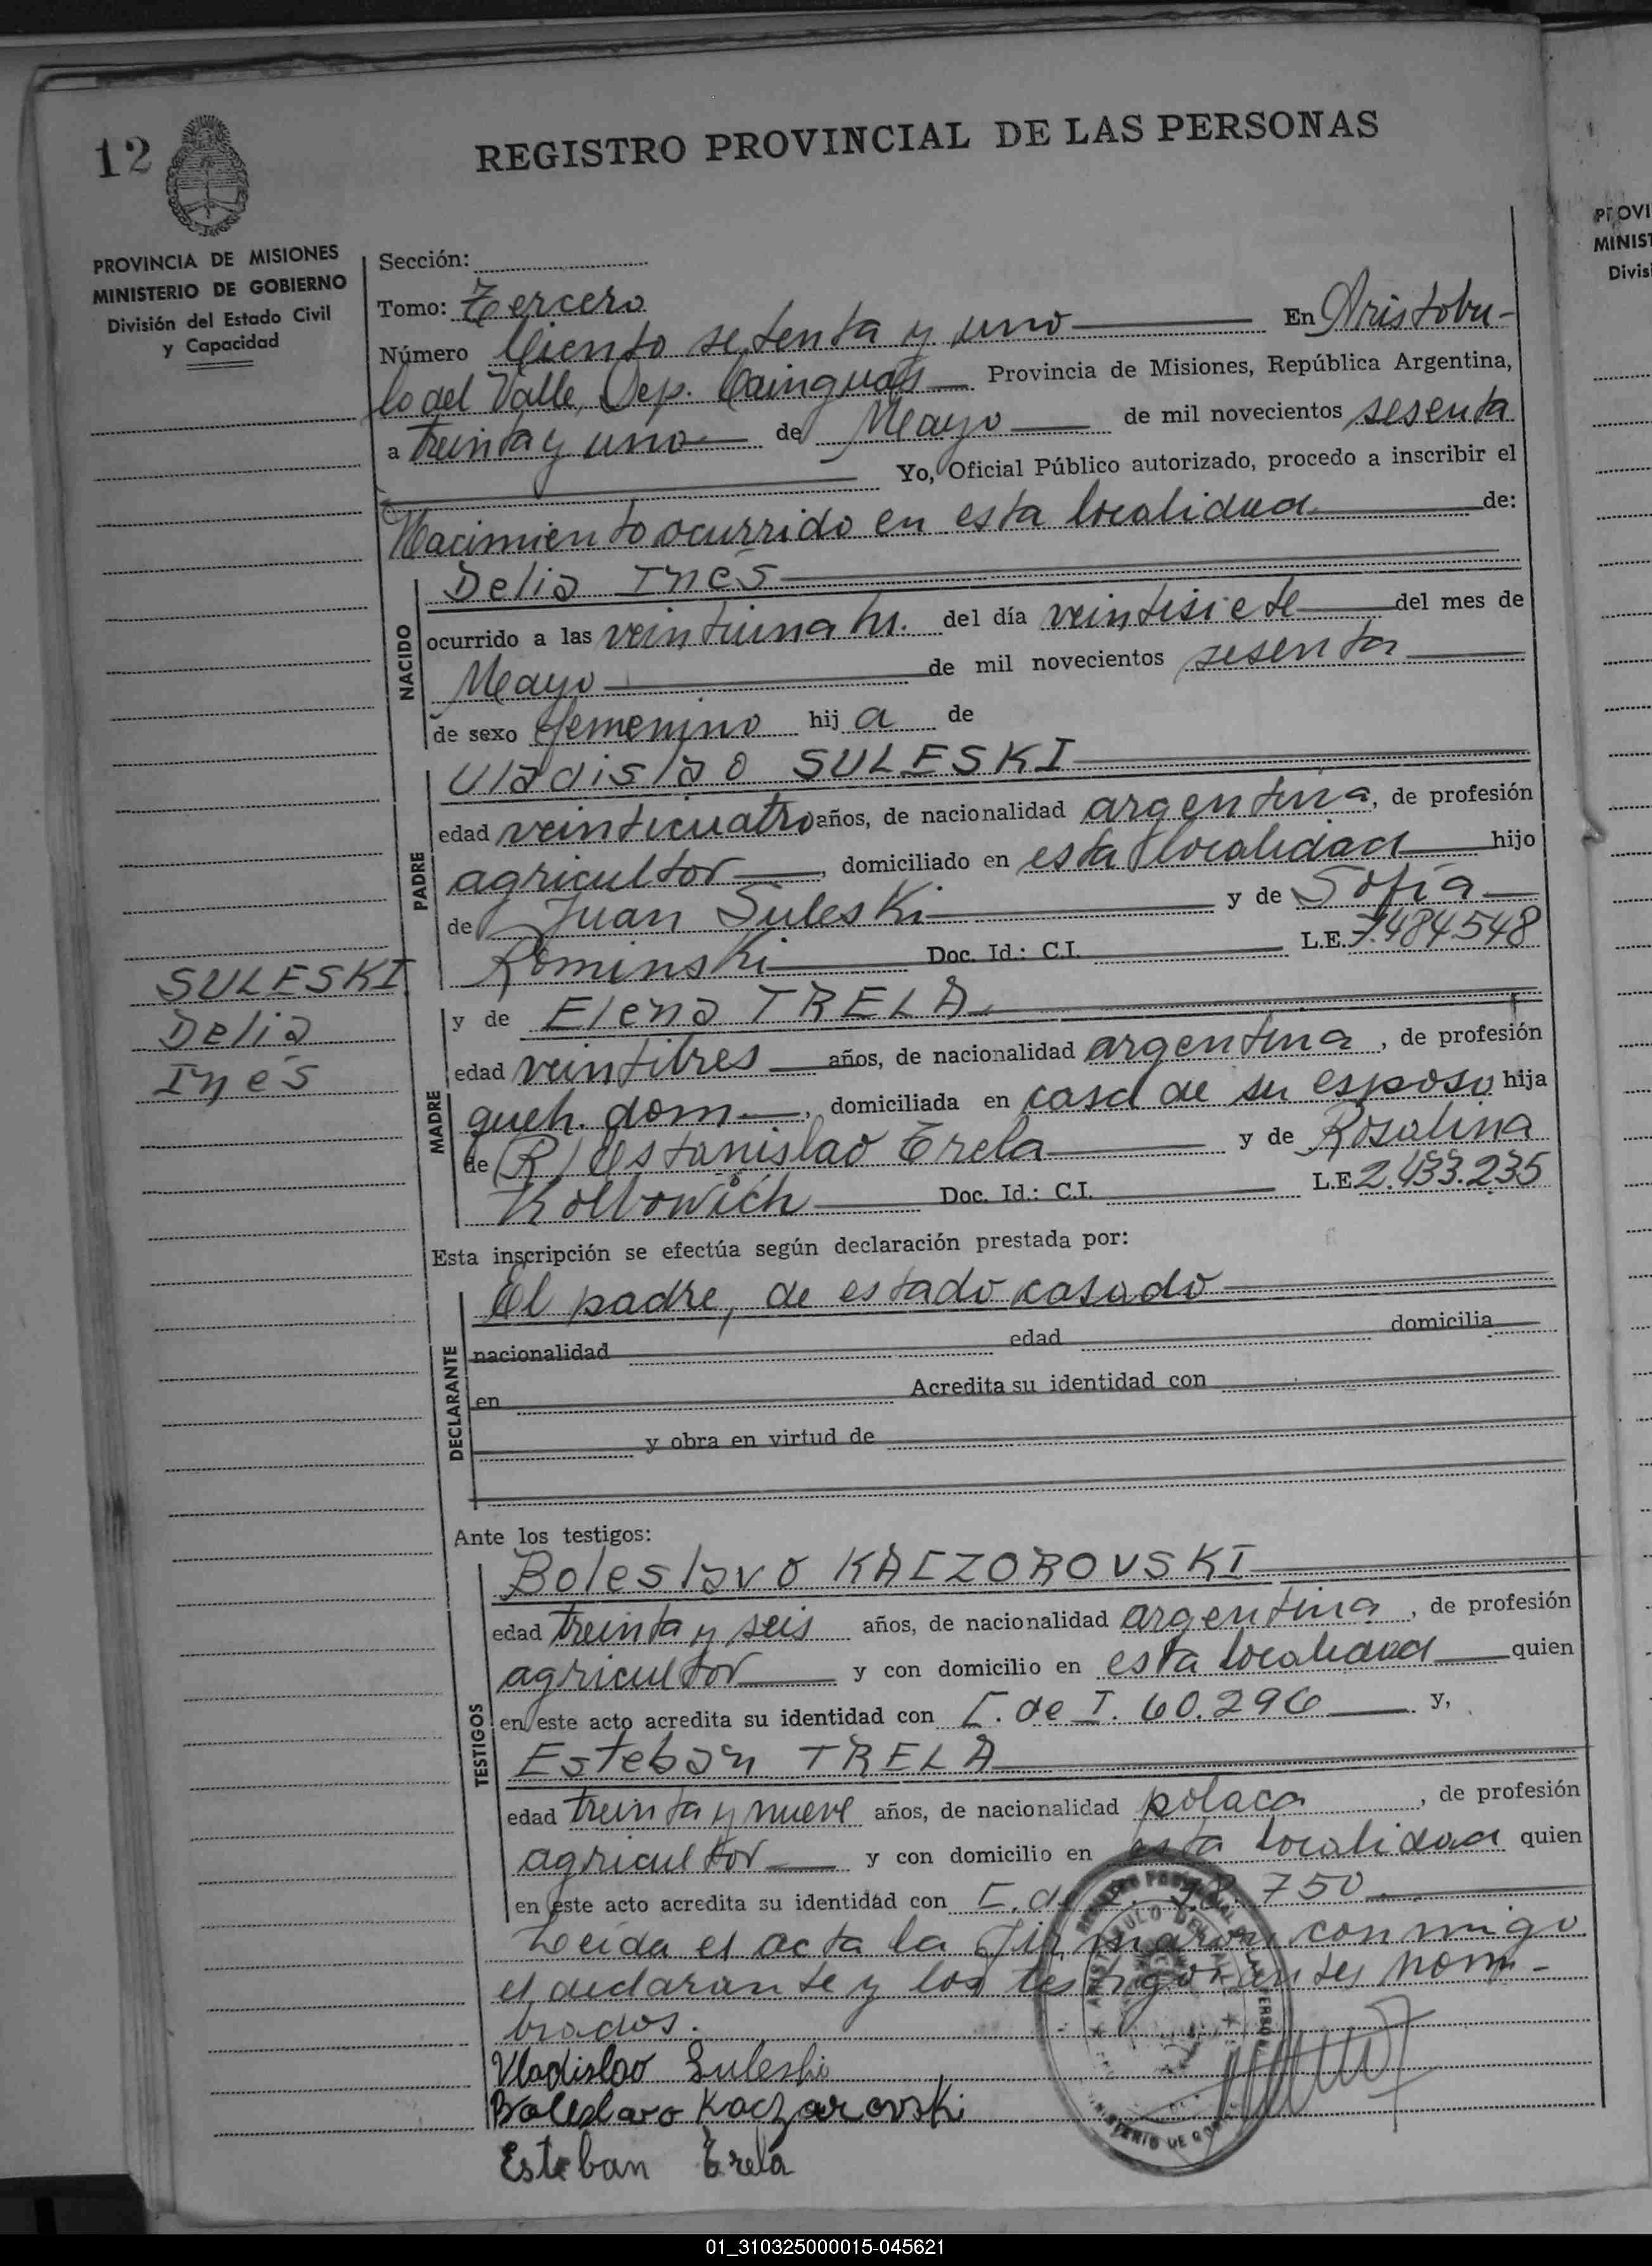 12
REGISTRO PROVINCIAL DE LAS PERSONAS
PROVINCIA DE MISIONES
MINISTERIO DE GOBIERNO
División del Estado Civil
y Capacidad
Sección:
Tomo: Tercero
Número Ciento setenta y uno En Aristobu-
lo del Valle, Dep. Cainguás Provincia de Misiones, República Argentina,
a treinta y uno de Mayo de mil novecientos sesenta
Yo, Oficial Público autorizado, procedo a inscribir el
Nacimiento ocurrido en esta localidad de:
NACIDO
Delia Inés
ocurrido a las veintiuna hs. del día veintisiete del mes de
Mayo de mil novecientos sesenta
de sexo femenino hij a de
PADRE
Uladislao SULESKI
edad veinticuatro años, de nacionalidad argentina, de profesión
agricultor, domiciliado en esta localidad hijo
de Juan Suleski y de Sofía
Rominski Doc. Id.: C.I. L.E. 7.484.548
SULESKI
Delia
Inés
MADRE
y de Elena TRELA
edad veintitres años, de nacionalidad argentina, de profesión
queh. dom., domiciliada en casa de su esposo hija
de (R) Estanislao Trela y de Rosalina
Doc. Id.: C.I. L.E 2.433.235
Esta inscripción se efectúa según declaración prestada por:
DECLARANTE
El padre, de estado casado
nacionalidad edad domicilia
en Acredita su identidad con
y obra en virtud de
Ante los testigos:
TESTIGOS
Boleslavo KACZOROVSKI
edad treinta y seis años, de nacionalidad argentina, de profesión
agricultor y con domicilio en esta localidad quien
en este acto acredita su identidad con C. de I. 60.296 y,
Esteban TRELA
edad treinta y nueve años, de nacionalidad polaca, de profesión
agricultor y con domicilio en esta localidad quien
en este acto acredita su identidad con C. de 750.
Leída el acta la firmaron conmigo
el declarante y los testigos antes nom-
brados.
Vladislao Suleski
Boleslavo Kaczarovski
Esteban Trela
PROVI
MINIST
Divis
01_310325000015-045621